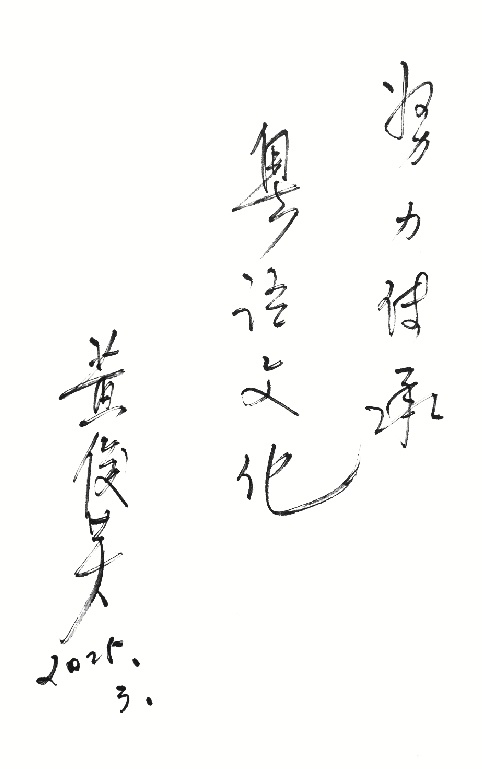 努力传承
粤语文化
黄俊英
2025.3.